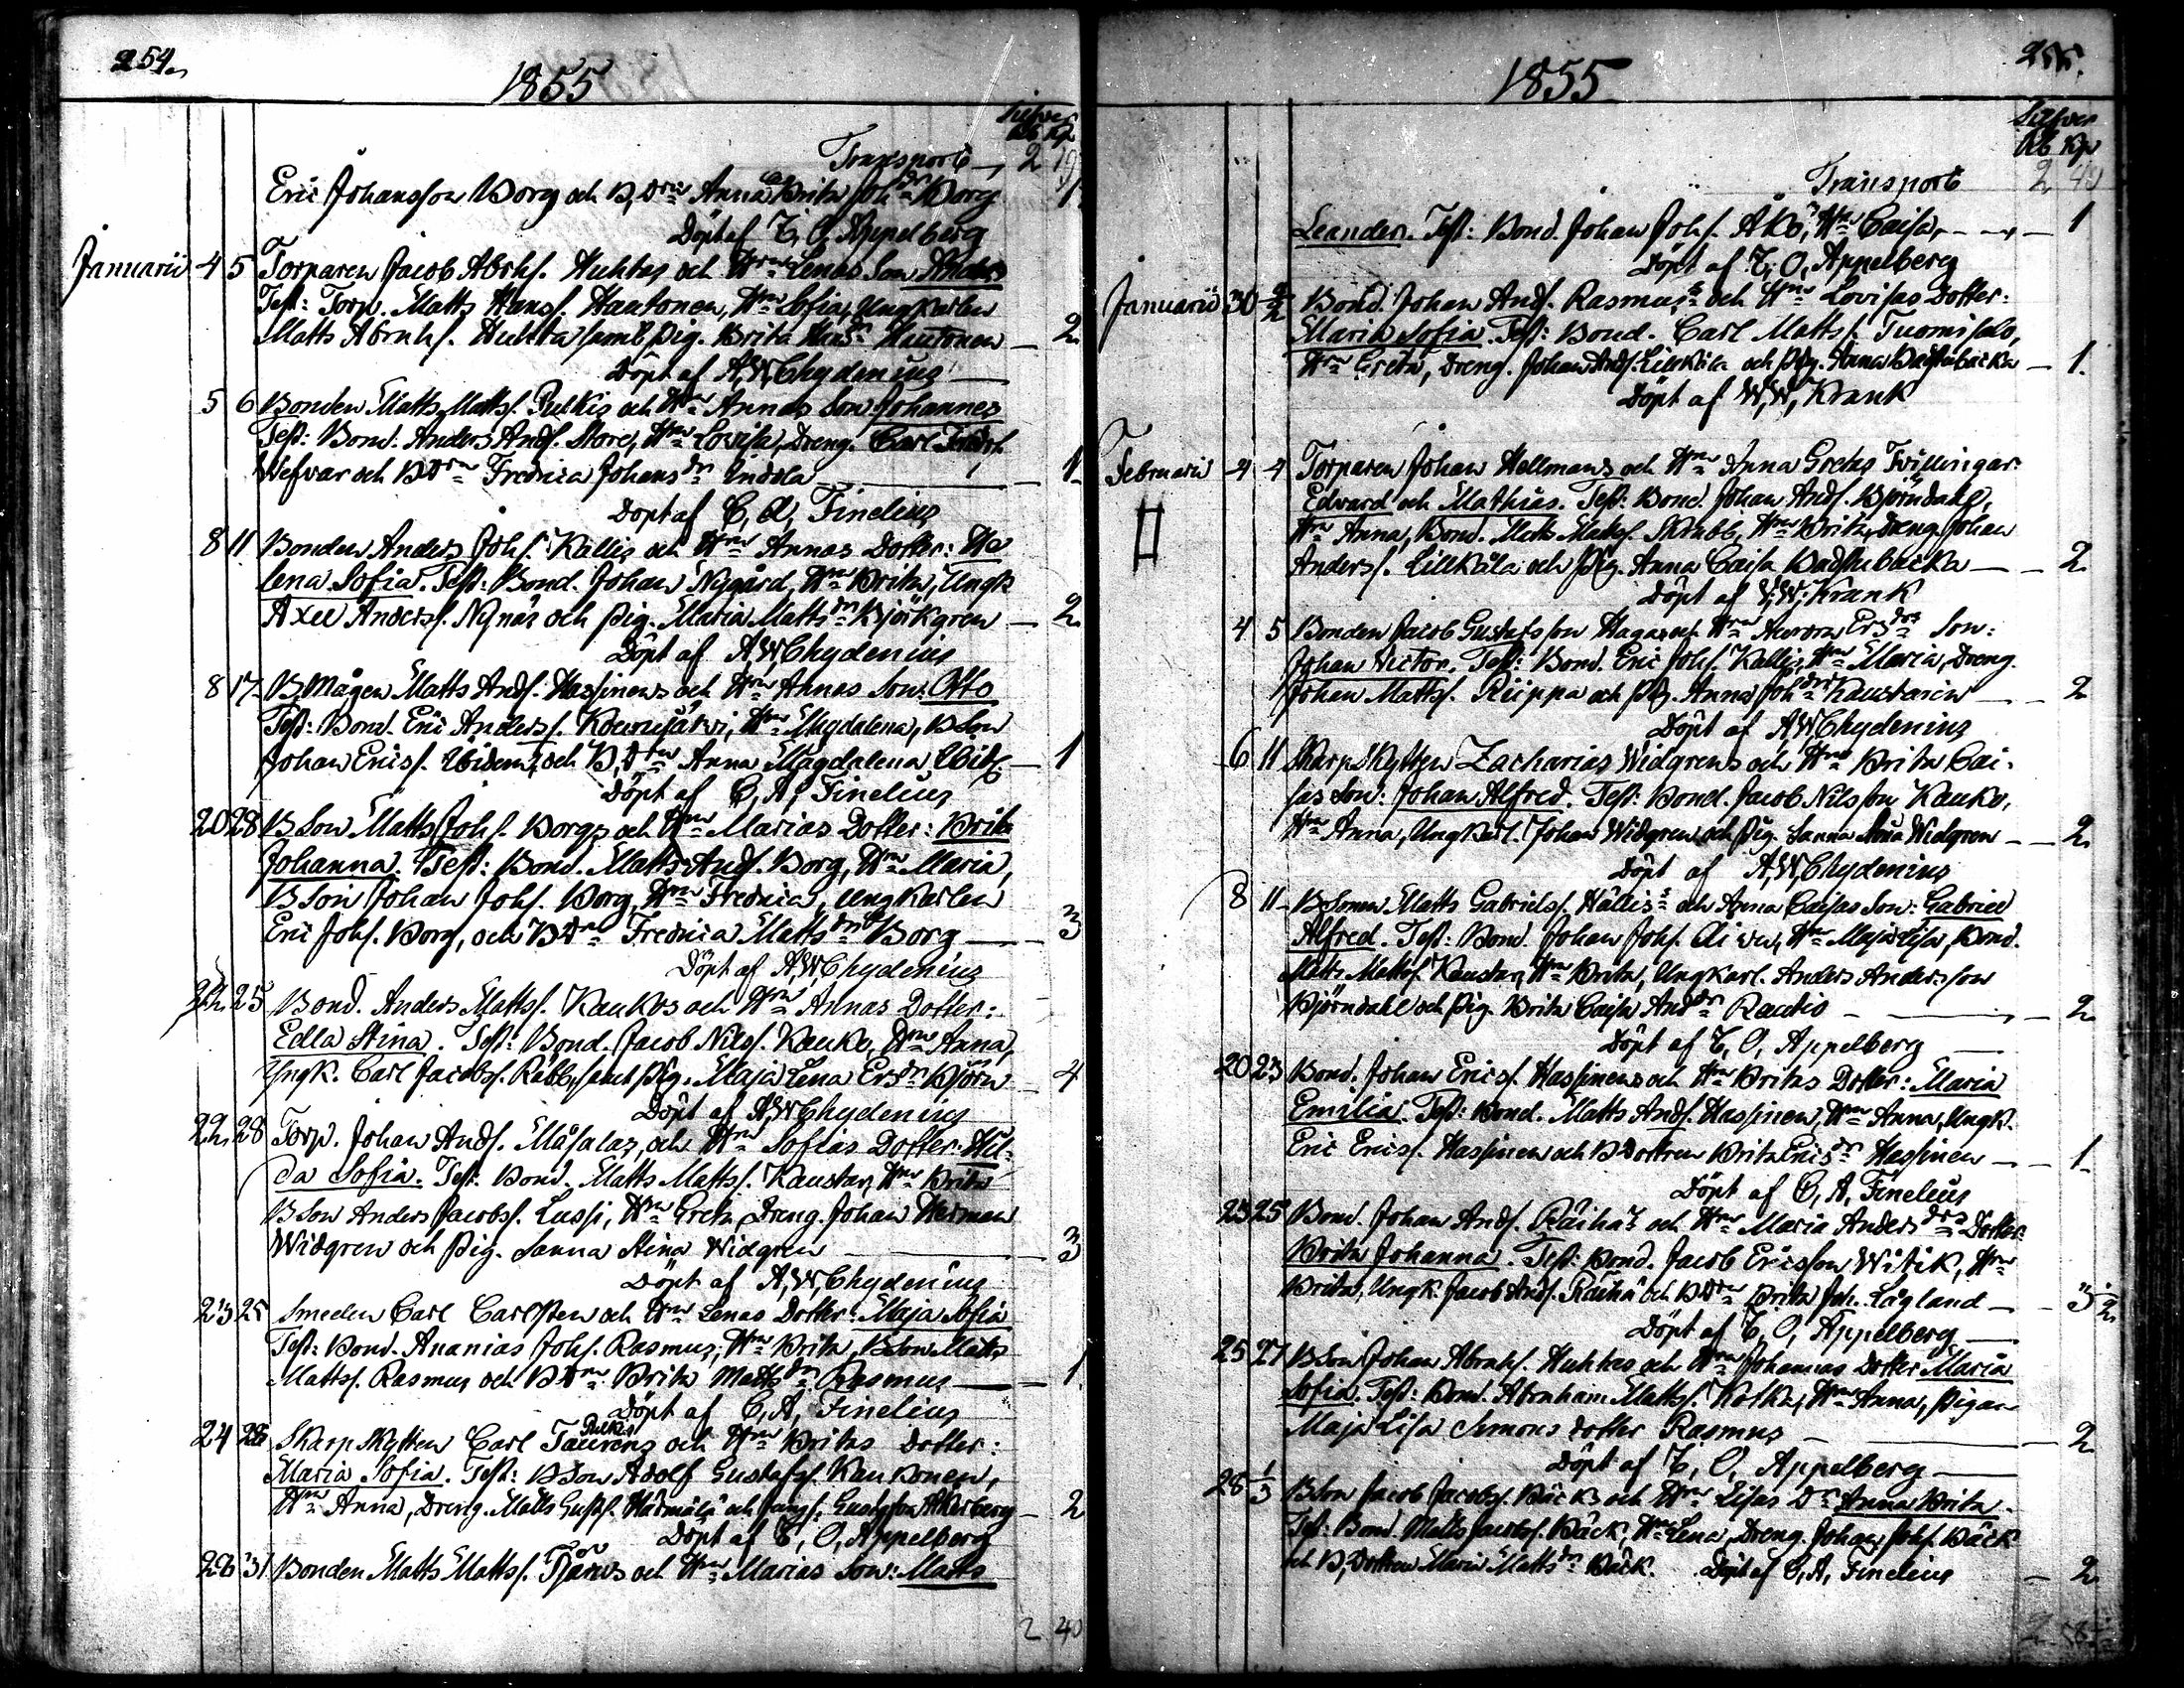 254.
1855
Silfver
Rb Kp
Transport 2 19
Eric Johansson Borg och B, Drn Anna Brita Johdr Borg 1
Döpt af T, O, Appelberg
Januarii 4 5 Torparen Jacob Abrhs. Huhtas och Hru Lenas Son Anders
Test: Torp. Matts Hanss. Hautonen, Hru Sofia, Ungkarlen
Matts Abrahs. Huhta samt Pig. Brita Hansdr Hautonen 2
Döpt af A, W, Chydenius
5 6 Bonden Matts Matts. Pulkis och Hru Annas Son Johannes
Test: Bond. Anders Ands. Store, Hru Lovisa, Dreng. Carl Fredrik
Wefvar och BDrn Fredrica Johansdr Indola 1
Döpt af C, A, Finelius
8 11 Bonden Anders Johs. Kallis och Hru Annas Dotter: He
lena Sofia. Test: Bond. Johan Nygård, Hru Brita, Ungk
Axel Anderss. Nynäs och Pig. Maria Mattsdr Björkgren 2
Döpt af A, W, Chydenius
8 17 B, Mågen Matts Ands. Hassinens och Hru Annas Son: Otto
Test: Bond. Eric Anderss. Kounujärvi, Hru Magdalena, B Son
Johan Ericss. Ibidem, och B, Drn Anna Magdalena Ibid 1
Döpt af C, A, Finelius
20 28 B Son Matts Johs. Borgs och Hru Marias Dotter: Brita
Johanna. Test: Bond. Matts Ands. Borg, Hru Maria,
B Son Johan Johs. Borg, Hru Fredrica, Ungkarlen
Eric Johs. Borg, och BDrn Fredrica Mattsdr Borg 3
Döpt af A, W, Chydenius
22 25 Bond. Anders Mattss. Kaukos och Hru Annas Dotter:
Edla Stina. Test: Bond. Jacob Nilss. Kauko, Hru Anna,
Yngk. Carl Jacobss. Räbb, samt Pig. Maja Lena Ersdr Björn 4
Döpt af A, W, Chydenius
22 28 Torp. Johan Ands. Måsalas, och Hru Sofias Dotter: Hil-
da Sofia. Test: Bond. Matts Matts. Kaustar, Hru Brita
B Son Anders Jacobss. Lassi, Hru Greta, Dreng. Johan Herman
Widgren och Pig. Sanna Stina Widgren 3
Döpt af A, W, Chydenius
23 25 Smeden Carl Carlsten och Hru Lenas Dotter: Maja Sofia
Test: Bond. Ananias Johs. Rasmus, Hru Brita, B Son Matts
Mattss. Rasmus och BDrn Brita Mattsdr Rasmus 1
Döpt af C, A, Finelius
Pulkis
24 28 Skarpskytten Carl Taurens och Hru Britas Dotter:
Maria Sofia. Test: B Son Adolf Gustafss. Kaukonen,
Hru Anna, Dreng. Matts Gusts. och Åkerberg 2
Döpt af T, O, Appelberg
28 31 Bonden Matts Mattss. Tjärus och Hru Marias Son: Matts
2 40
255.
1855
Silfver
Rb Kp
Transport 2 40
Leander. Test: Bond. Johan Johs. Åkö, Hru Caisa, 1
Döpt af T, O, Appelberg
Januarii 30 2/2 Bond. Johan Ands. Rasmus's och Hru Lovisas Dotter:
Maria Sofia. Test: Bond. Carl Mattss. Tuomisalo,
Hru Greta, Dreng. Johan Ands. Lillkäla och Pig. Anna Badstubacka 1
Döpt af W, W, Krank
Februarii 4 4 Torparen Johan Hellmans och Hru Anna Gretas Tvillingar:
Edward och Mathias. Test: Bond. Johan Ands. Björndahl,
Hru Anna, Bond. Matts Matss. Skrabb, Hru Brita, Dreng. Johan
Anderss. Lillkäla och Pig. Anna Caisa Badstubacka 2
Döpt af W, W, Krank
4 5 Bonden Jacob Gustafsson Hagas och Hru Aurora Ersdrs Son:
Johan Victor. Test: Bond. Eric Johs. Kallis, Hru Maria, Dreng.
Johan Mattss. Riippa och Pig. Anna Johdr Kaustarin 2
Döpt af A, W, Chydenius
6 11 Skarpskytten Zacharias Widgrens och Hru Brita Cai-
sas Son: Johan Alfred. Test: Bond. Jacob Nilsson Kauko,
Hru Anna, Ungkarl. Johan Widgren och Pig. Sanna Stina Widgren 2
Döpt af A, W, Chydenius
8 11 B Sonen Matts Gabrielss. Hällis's och Anna Caisas Son: Gabriel
Alfred. Test: Bond. Johan Johs. Hru Maja Lisa, Bond.
Matts Mattss. Kaustar, Hru Brita, Ungkarl. Anders Andersson
Björndahl och Pig. Brita Caisa Anddr Rautio 2
Döpt af T, O, Appelberg
20 23 Bond. Johan Ericss. Hassinens och Hru Britas Dotter: Maria
Emilia. Test: Bond. Matts Ands. Hassinen, Hru Anna, Ungk.
Eric Ericss. Hassinen och B Dottren Brita Ericsdr Hassinen 1
Döpt af C, A, Finelius
23 25 Bond. Johan Ands. Räihäs och Hru Maria Andersdrs Dotter:
Brita Johanna. Test: Bond. Jacob Ericsson Witik, Hru
Brita, Ungk. Jacob Ands. Räihä och BDrn Brita Joh. Lågland 3 1/2
Döpt af T, O, Appelberg
25 27 B Son Johan Abrahs. Huhtas och Hru Johannas Dotter Maria
Sofia. Test: Bond. Abraham Mattss. Kotka, Hru Anna, Pigan
Maja Lisa Simons dotter Rasmus 2
Döpt af T, O, Appelberg
28 1/3 B Son Jacob Jacobss. Bäcks och Hru Lisas Dr Anna Brita.
Test: Bond. Matts Jacobss. Bäck, Hru Lena, Dreng. Johan Johs. Bäck
och B, Dottren Maria Mattsdr Bäck. Döpt af C, A, Finelius 2
2 58